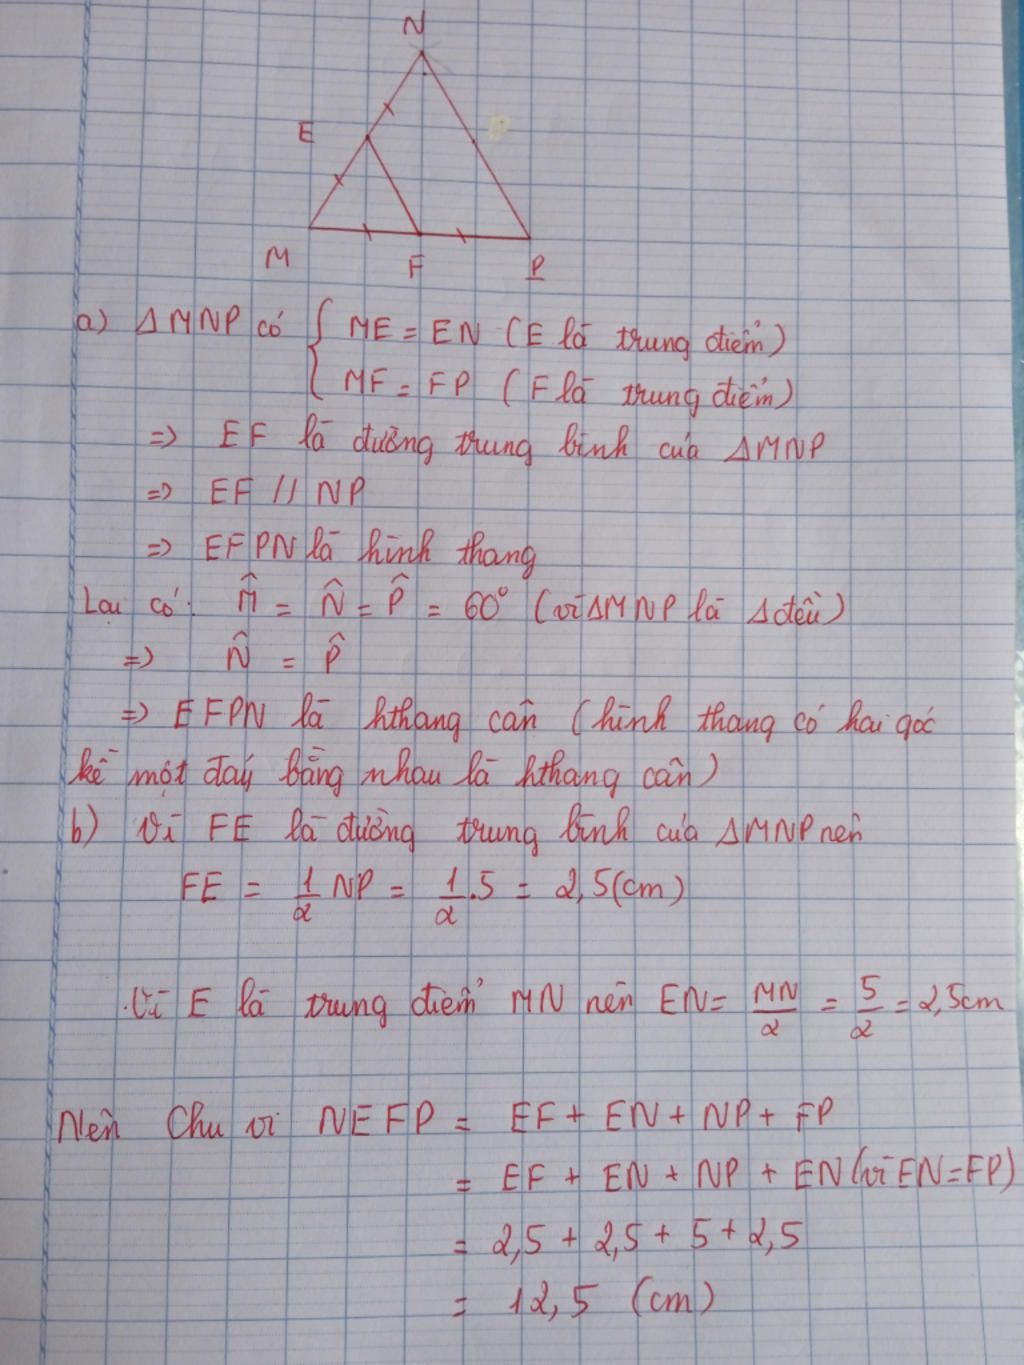 N
E
M F P
a) ΔMNP có { ME = EN (E là trung điểm)
MF = FP (F là trung điểm)
=> EF là đường trung bình của ΔMNP
=> EF // NP
=> EFPN là hình thang
Lại có: M̂ = N̂ = P̂ = 60° (vì ΔMNP là Δ đều)
=> N̂ = P̂
=> EFPN là hthang cân (hình thang có hai góc
kề một đáy bằng nhau là hthang cân)
b) Vì FE là đường trung bình của ΔMNP nên
FE = 1/2 NP = 1/2 . 5 = 2,5 (cm)
Vì E là trung điểm MN nên EN = MN/2 = 5/2 = 2,5cm
Nên Chu vi NEFP = EF + EN + NP + FP
= EF + EN + NP + EN (vì EN = FP)
= 2,5 + 2,5 + 5 + 2,5
= 12,5 (cm)